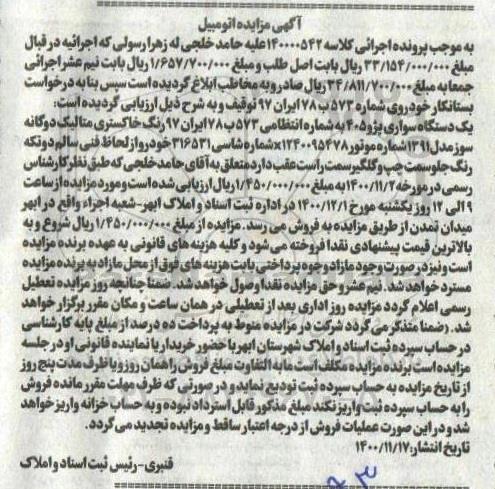 آگهی مزایده اتومبیل
به موجب پرونده اجرائی کلاسه ۱۴۰۰۰۰۵۴۲ علیه حامد خلجی له زهرا رسولی که اجرائیه در قبال
مبلغ ۳۳/۱۵۴/۰۰۰/۰۰۰ ریال بابت اصل طلب و مبلغ ۱/۶۵۷/۷۰۰/۰۰۰ ریال بابت نیم عشر اجرائی
جمعا به مبلغ ۳۴/۸۱۱/۷۰۰/۰۰۰ ریال صادر و به مخاطب ابلاغ گردیده است سپس بنا به درخواست
بستانکار خودروی شماره ۵۷۳ ب ۷۸ ایران ۹۷ توقیف و به شرح ذیل ارزیابی گردیده است:
یک دستگاه سواری پژو ۴۰۵ به شماره انتظامی ۵۷۳ ب ۷۸ ایران ۹۷ رنگ خاکستری متالیک دوگانه
سوز مدل ۱۳۹۱ شماره موتور ۱۲۴۰۰۹۵۴۷۸x شماره شاسی ۳۱۶۵۳۱ خودرو از لحاظ فنی سالم دو تکه
رنگ جلو سمت چپ و گلگیر سمت راست عقب دارد متعلق به آقای حامد خلجی که طبق نظر کارشناس
رسمی در مورخه ۱۴۰۰/۱۱/۲ به مبلغ ۱/۴۵۰/۰۰۰/۰۰۰ ریال ارزیابی شده است و مورد مزایده از ساعت
۹ الی ۱۲ روز یکشنبه مورخ ۱۴۰۰/۱۲/۱ در اداره ثبت اسناد و املاک ابهر-شعبه اجراء واقع در ابهر
میدان تمدن از طریق مزایده به فروش می رسد. مزایده از مبلغ ۱/۴۵۰/۰۰۰/۰۰۰ ریال شروع و به
بالاترین قیمت پیشنهادی نقدا فروخته می شود و کلیه هزینه های قانونی به عهده برنده مزایده
است و نیز در صورت وجود مازاد وجوه پرداختی بابت هزینه های فوق از محل مازاد به برنده مزایده
مسترد خواهد شد. نیم عشر و حق مزایده نقدا وصول خواهد شد. ضمنا چنانچه روز مزایده تعطیل
رسمی اعلام گردد مزایده روز اداری بعد از تعطیلی در همان ساعت و مکان مقرر برگزار خواهد
شد. (ضمنا متذکر می گردد شرکت در مزایده منوط به پرداخت ده درصد از مبلغ پایه کارشناسی
در حساب سپرده ثبت اسناد و املاک شهرستان ابهر با حضور خریدار یا نماینده قانونی او در جلسه
مزایده است برنده مزایده مکلف است مابه التفاوت مبلغ فروش را همان روز و یا ظرف مدت پنج روز
از تاریخ مزایده به حساب سپرده ثبت تودیع نماید و در صورتی که ظرف مهلت مقرر مانده فروش
را به حساب سپرده ثبت واریز نکند مبلغ مذکور قابل استرداد نبوده و به حساب خزانه واریز خواهد
شد و در این صورت عملیات فروش از درجه اعتبار ساقط و مزایده تجدید می گردد.
تاریخ انتشار: ۱۴۰۰/۱۱/۱۷
قنبری-رئیس ثبت اسناد و املاک